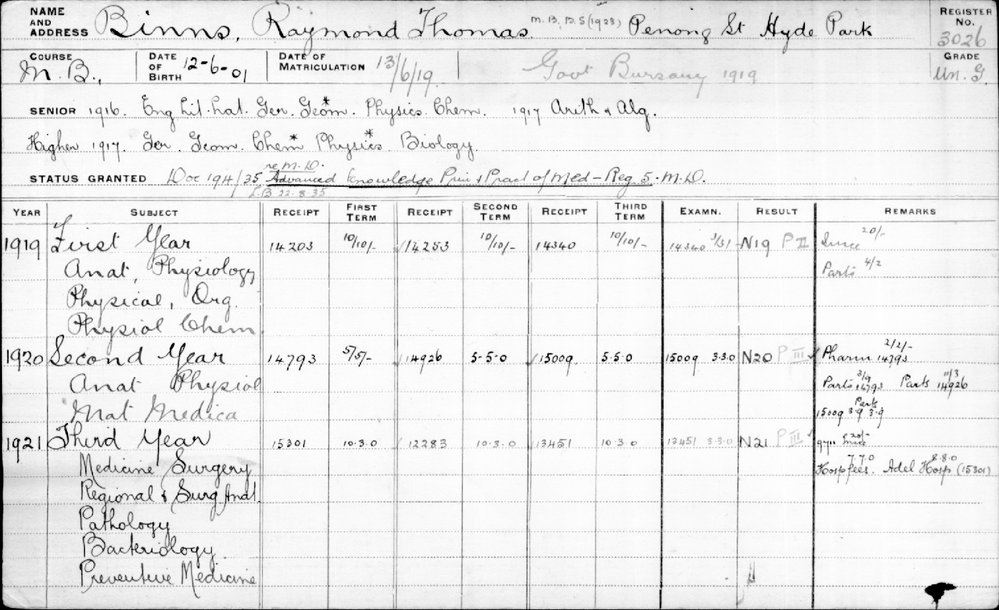 NAME AND ADDRESS Binns, Raymond Thomas. M.B, B.S (1923) Penong St Hyde Park REGISTER No. 3026
COURSE M.B., DATE OF BIRTH 12-6-01 DATE OF MATRICULATION 13/6/19. Govt Bursary 1919 GRADE Un. G.
SENIOR 1916. Eng Lit. Lat. Ger. Geom.* Physics. Chem. 1917 Arith & Alg.
Higher 1917. Ger. Geom. Chem* Physics* Biology.
re M.D.
STATUS GRANTED Doc 194/35 Advanced Knowledge Prin & Pract of Med - Reg. 5. M.D.
22.8.35
YEAR SUBJECT RECEIPT FIRST TERM RECEIPT SECOND TERM RECEIPT THIRD TERM EXAMN. RESULT REMARKS
1919 First Year 14203 10/10/- 14253 10/10/- 14340 10/10/- 14340 3/3/- N19 P II 20/-
Anat, Physiology Parts 4/2
Physical, Org.
Physiol Chem.
1920 Second Year 14793 5/5/- 14926 5.5.0 15009 5.5.0 15009 3.3.0 N20 P III Pharm 2/2/- 14793
Anat Physiol Parts 3/9 14793 Parts 11/3 14926
Mat Medica 15009 Parts 3.9 3.9
1921 Third Year 15301 10.3.0 12283 10.3.0 13451 10.3.0 13451 3.3.0 N21 P III 20/-
Medicine Surgery Hosp fees. 7.7.0 Adel Hosp 8.8.0 (15301)
Regional & Surg Anat.
Pathology
Backriology
Preventive Medicine